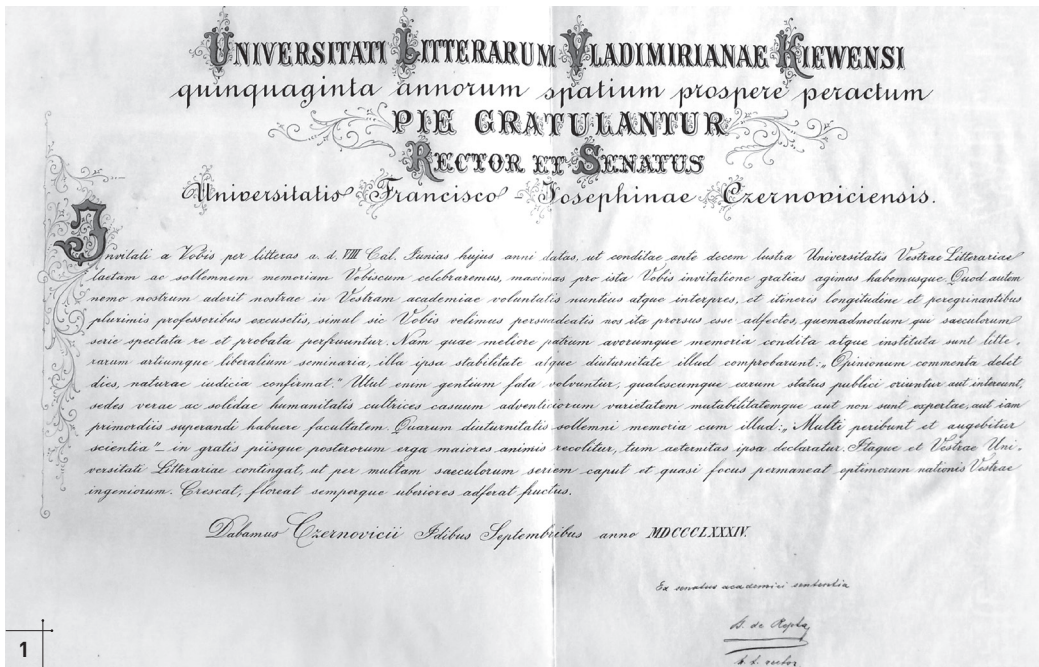 UNIVERSITATI LITTERARUM VLADIMIRIANAE KIEWENSI
quinquaginta annorum spatium prospere peractum
PIE GRATULANTUR
RECTOR ET SENATUS
Universitatis Francisco-Josephinae Czernoviciensis.
Invitati a Vobis per litteras a. d. VIII Cal. Junias hujus anni datas, ut conditae ante decem lustra Universitatis Vestrae Litterariae
laetam ac sollemnem memoriam Vobiscum celebraremus, maximas pro ista Vobis invitatione gratias agimus habemusque. Quod autem
nemo nostrum aderit nostrae in Vestram academiae voluntatis nuntius atque interpres, et itineris longitudine et peregrinantibus
plurimis professoribus excusetis, simul sic Vobis velimus persuadeatis nos ita prorsus esse adfectos, quemadmodum qui saeculorum
serie spectata re et probata perfruuntur. Nam quae meliore patrum avorumque memoria condita atque instituta sunt litte-
rarum artiumque liberalium seminaria, illa ipsa stabilitate atque diuturnitate illud comprobarunt: „Opinionum commenta delet
dies, naturae iudicia confirmat.” Utut enim gentium fata volvuntur, qualescumque earum status publici oriuntur aut intereunt,
sedes verae ac solidae humanitatis cultrices casuum adventiciorum varietatem mutabilitatemque aut non sunt expertae, aut iam
primordiis superandi habuere facultatem. Quarum diuturnitatis sollemni memoria cum illud: „Multi peribunt et augebitur
scientia” – in gratis piisque posterorum erga maiores animis recolitur, tum aeternitas ipsa declaratur. Itaque et Vestrae Uni-
versitati Litterariae contingat, ut per multam saeculorum seriem caput et quasi focus permaneat optimorum nationis Vestrae
ingeniorum. Crescat, floreat semperque uberiores adferat fructus.
Dabamus Czernovicii Idibus Septembribus anno MDCCCLXXXIV.
Ex senatus academici sententia
de Repta
h. t. rector
1